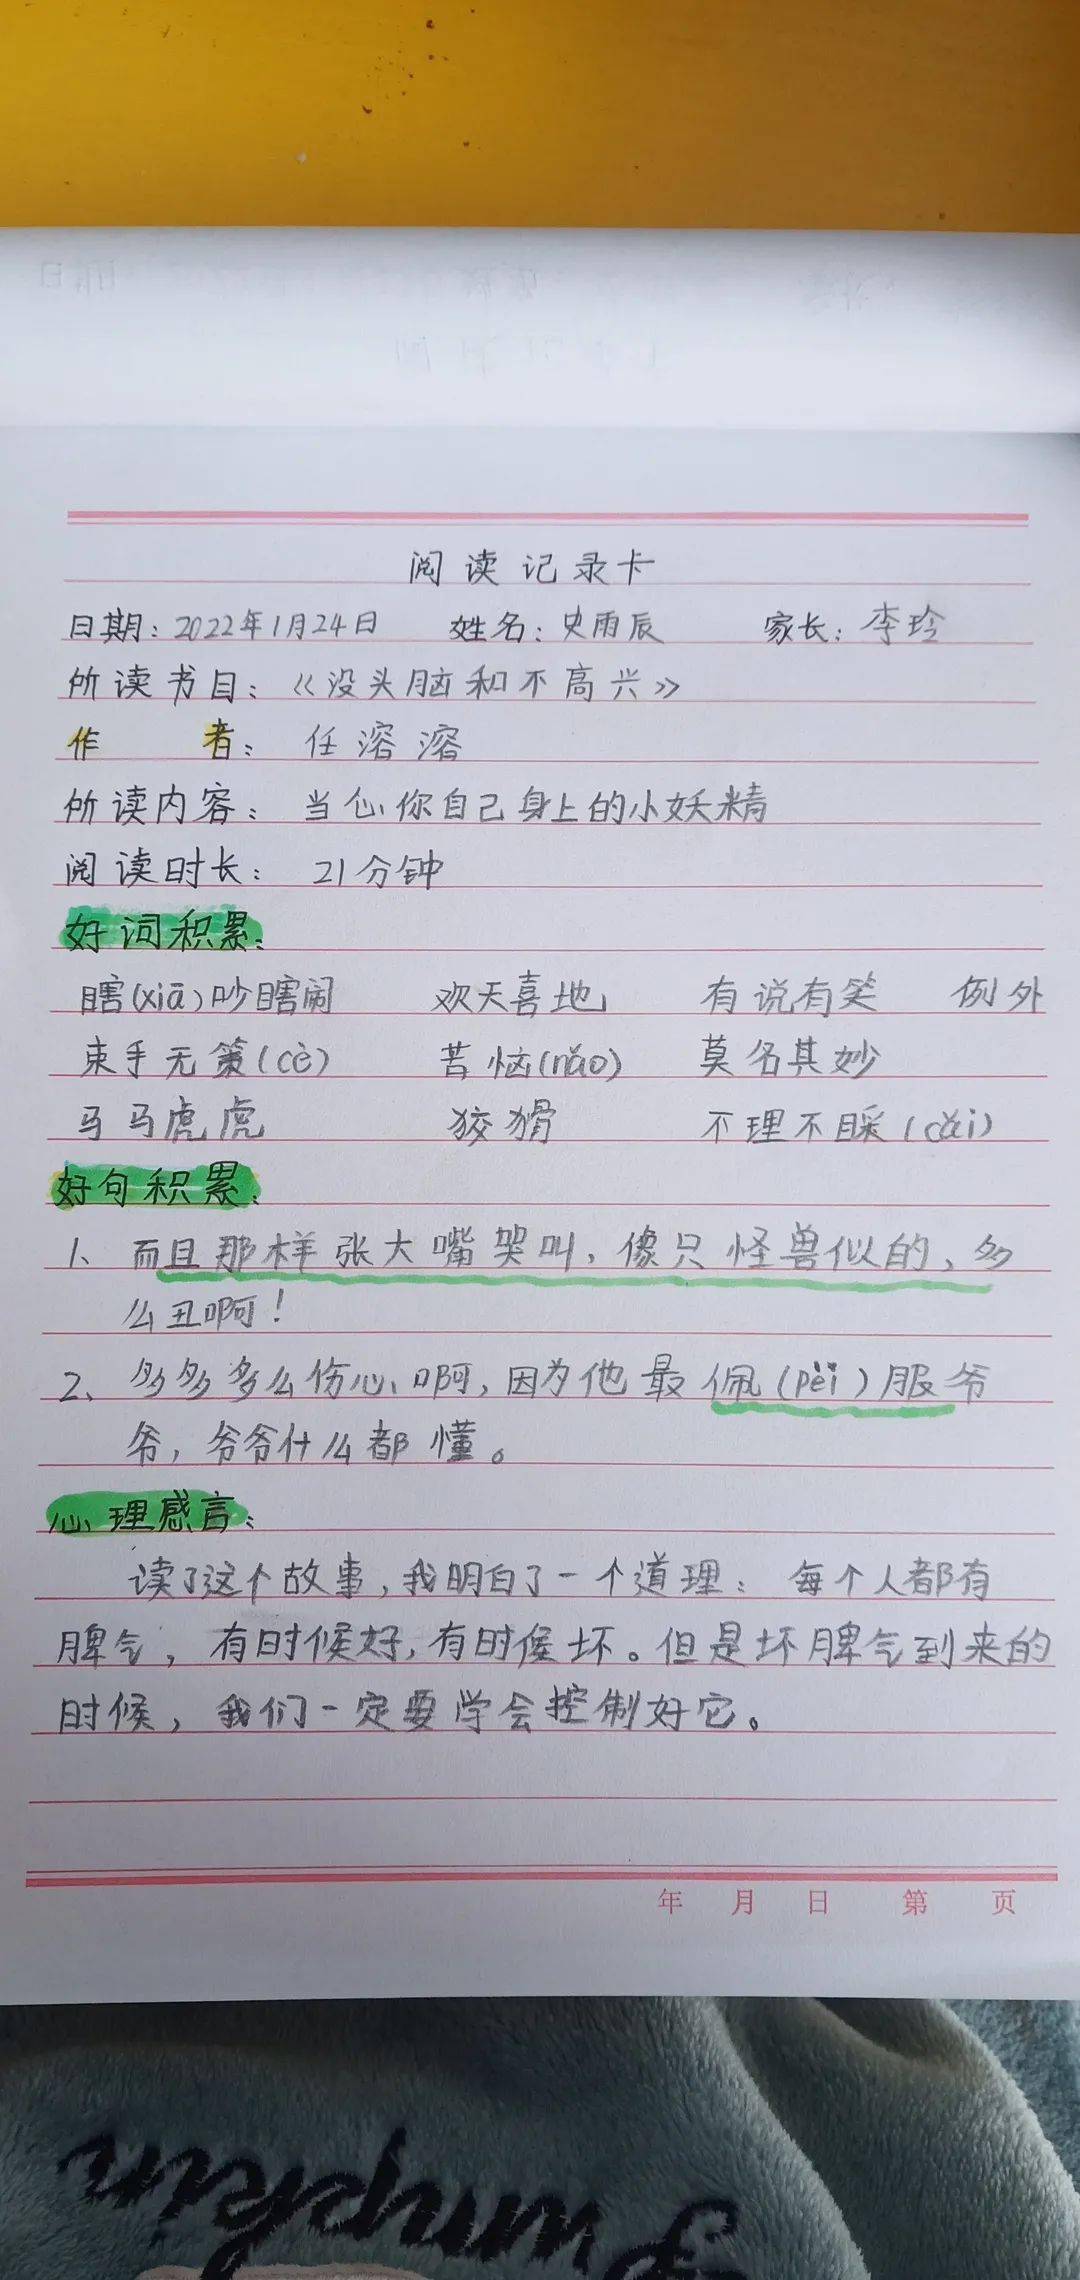 阅读记录卡
日期：2022年1月24日 姓名：史雨辰 家长：李玲
所读书目：《没头脑和不高兴》
作 者：任溶溶
所读内容：当心你自己身上的小妖精
阅读时长：21分钟
好词积累：
瞎(xiā)吵瞎闹 欢天喜地 有说有笑 例外
束手无策(cè) 苦恼(nǎo) 莫名其妙
马马虎虎 狡猾 不理不睬(cǎi)
好句积累：
1、而且那样张大嘴哭叫，像只怪兽似的，多
么丑啊！
2、多多多么伤心啊，因为他最佩(pèi)服爷
爷，爷爷什么都懂。
心理感言：
读了这个故事，我明白了一个道理：每个人都有
脾气，有时候好，有时候坏。但是坏脾气到来的
时候，我们一定要学会控制好它。
年 月 日 第 页
Pumpkin